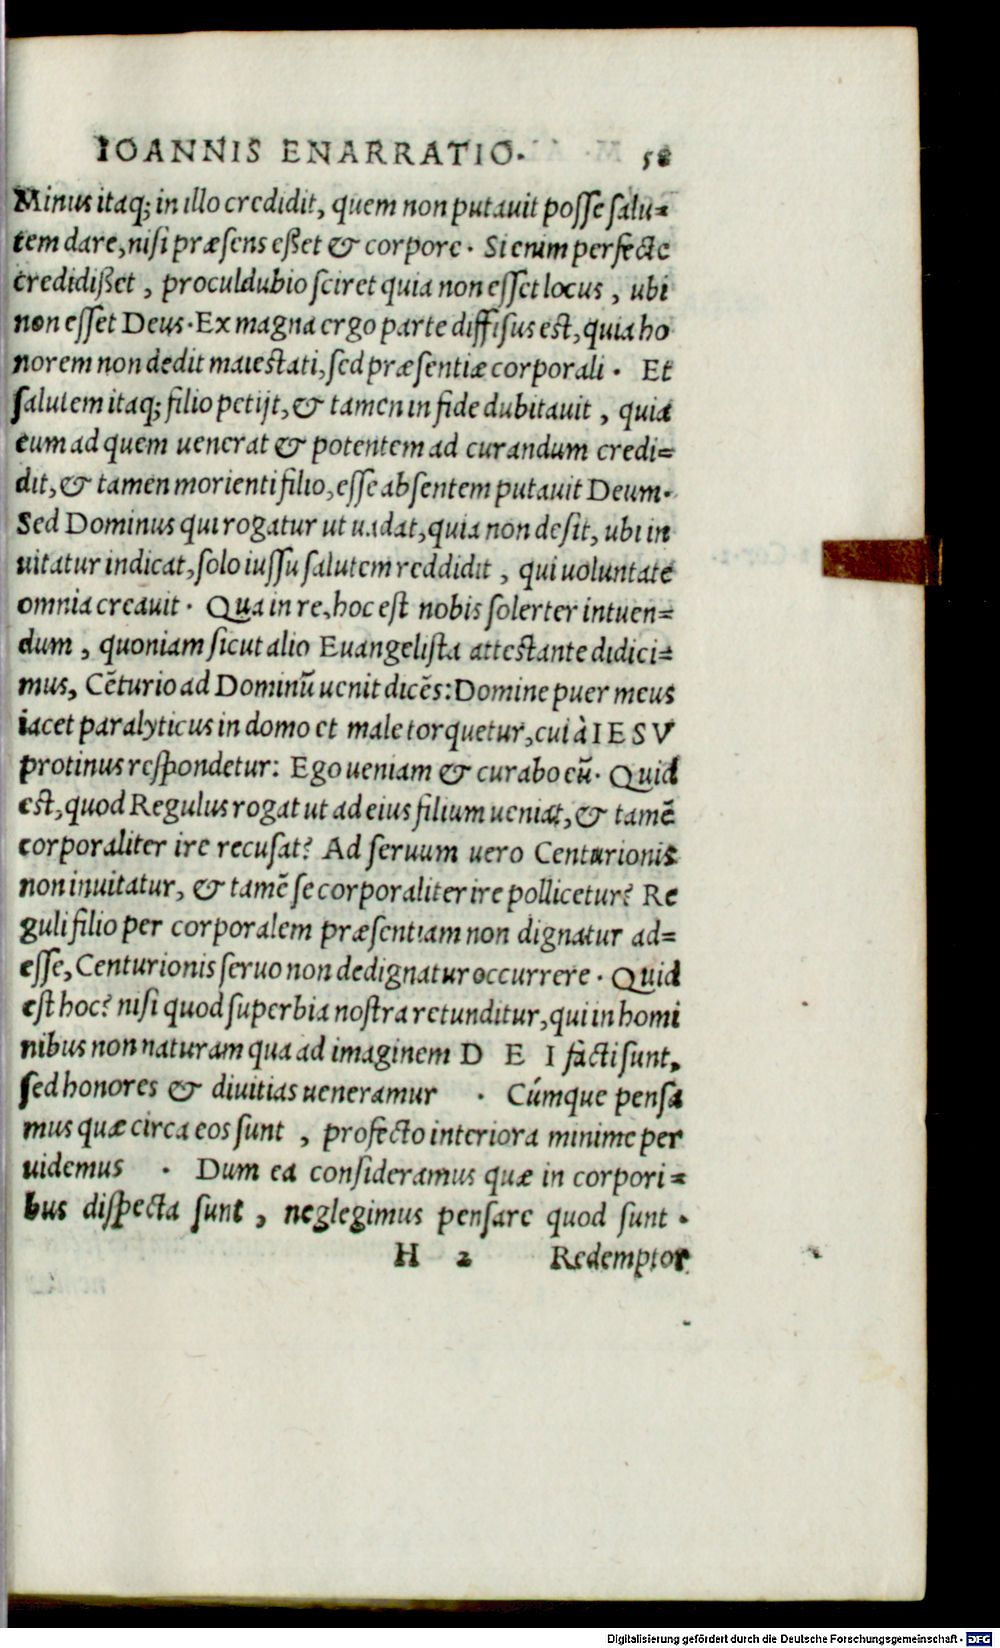 IOANNIS ENARRATIO.
Minus itaq; in illo credidit, quem non putauit posse salu=
tem dare, nisi præsens eßet & corpore. Si enim perfecte
credidißet, proculdubio sciret quia non esset locus, ubi
non esset Deus. Ex magna ergo parte diffisus est, quia ho
norem non dedit maiestati, sed præsentiæ corporali. Et
salutem itaq; filio petijt, & tamen in fide dubitauit, quia
eum ad quem uenerat & potentem ad curandum credi=
dit, & tamen morienti filio, esse absentem putauit Deum.
Sed Dominus qui rogatur ut uadat, quia non desit, ubi in
uitatur indicat, solo iussu salutem reddidit, qui uoluntate
omnia creauit. Qua in re, hoc est nobis solerter intuen=
dum, quoniam sicut alio Euangelista attestante didici=
mus, Cēturio ad Dominū uenit dicēs: Domine puer meus
iacet paralyticus in domo et male torquetur, cui à IESV
protinus respondetur: Ego ueniam & curabo eū. Quid
est, quod Regulus rogat ut ad eius filium ueniat, & tamē
corporaliter ire recusat? Ad seruum uero Centurionis
non inuitatur, & tamē se corporaliter ire pollicetur? Re
guli filio per corporalem præsentiam non dignatur ad=
esse, Centurionis seruo non dedignatur occurrere. Quid
est hoc? nisi quod superbia nostra retunditur, qui in homi
nibus non naturam qua ad imaginem D E I facti sunt,
sed honores & diuitias ueneramur. Cúmque pensa
mus quæ circa eos sunt, profecto interiora minime per
uidemus. Dum ea consideramus quæ in corpori=
bus dispecta sunt, neglegimus pensare quod sunt.
H 2 Redemptor
Digitalisierung gefördert durch die Deutsche Forschungsgemeinschaft - DFG